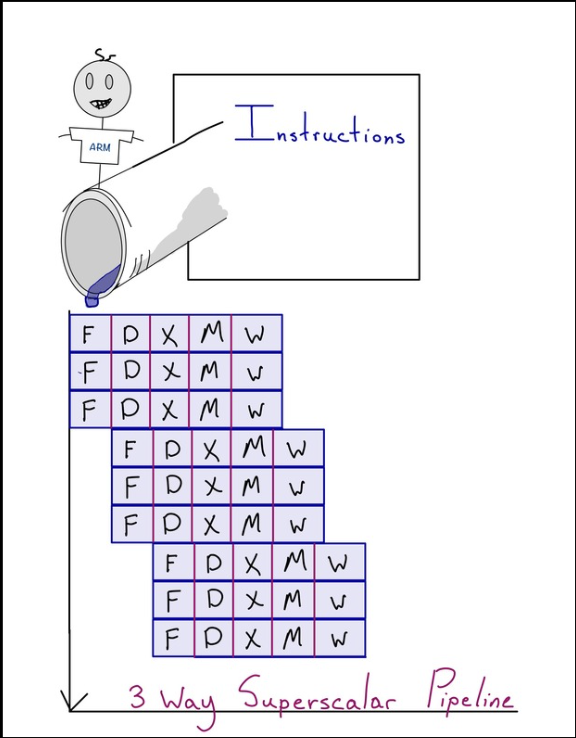 ARM
Instructions
F D X M W
F D X M W
F D X M W
F D X M W
F D X M W
F D X M W
F D X M W
F D X M W
F D X M W
3 Way Superscalar Pipeline